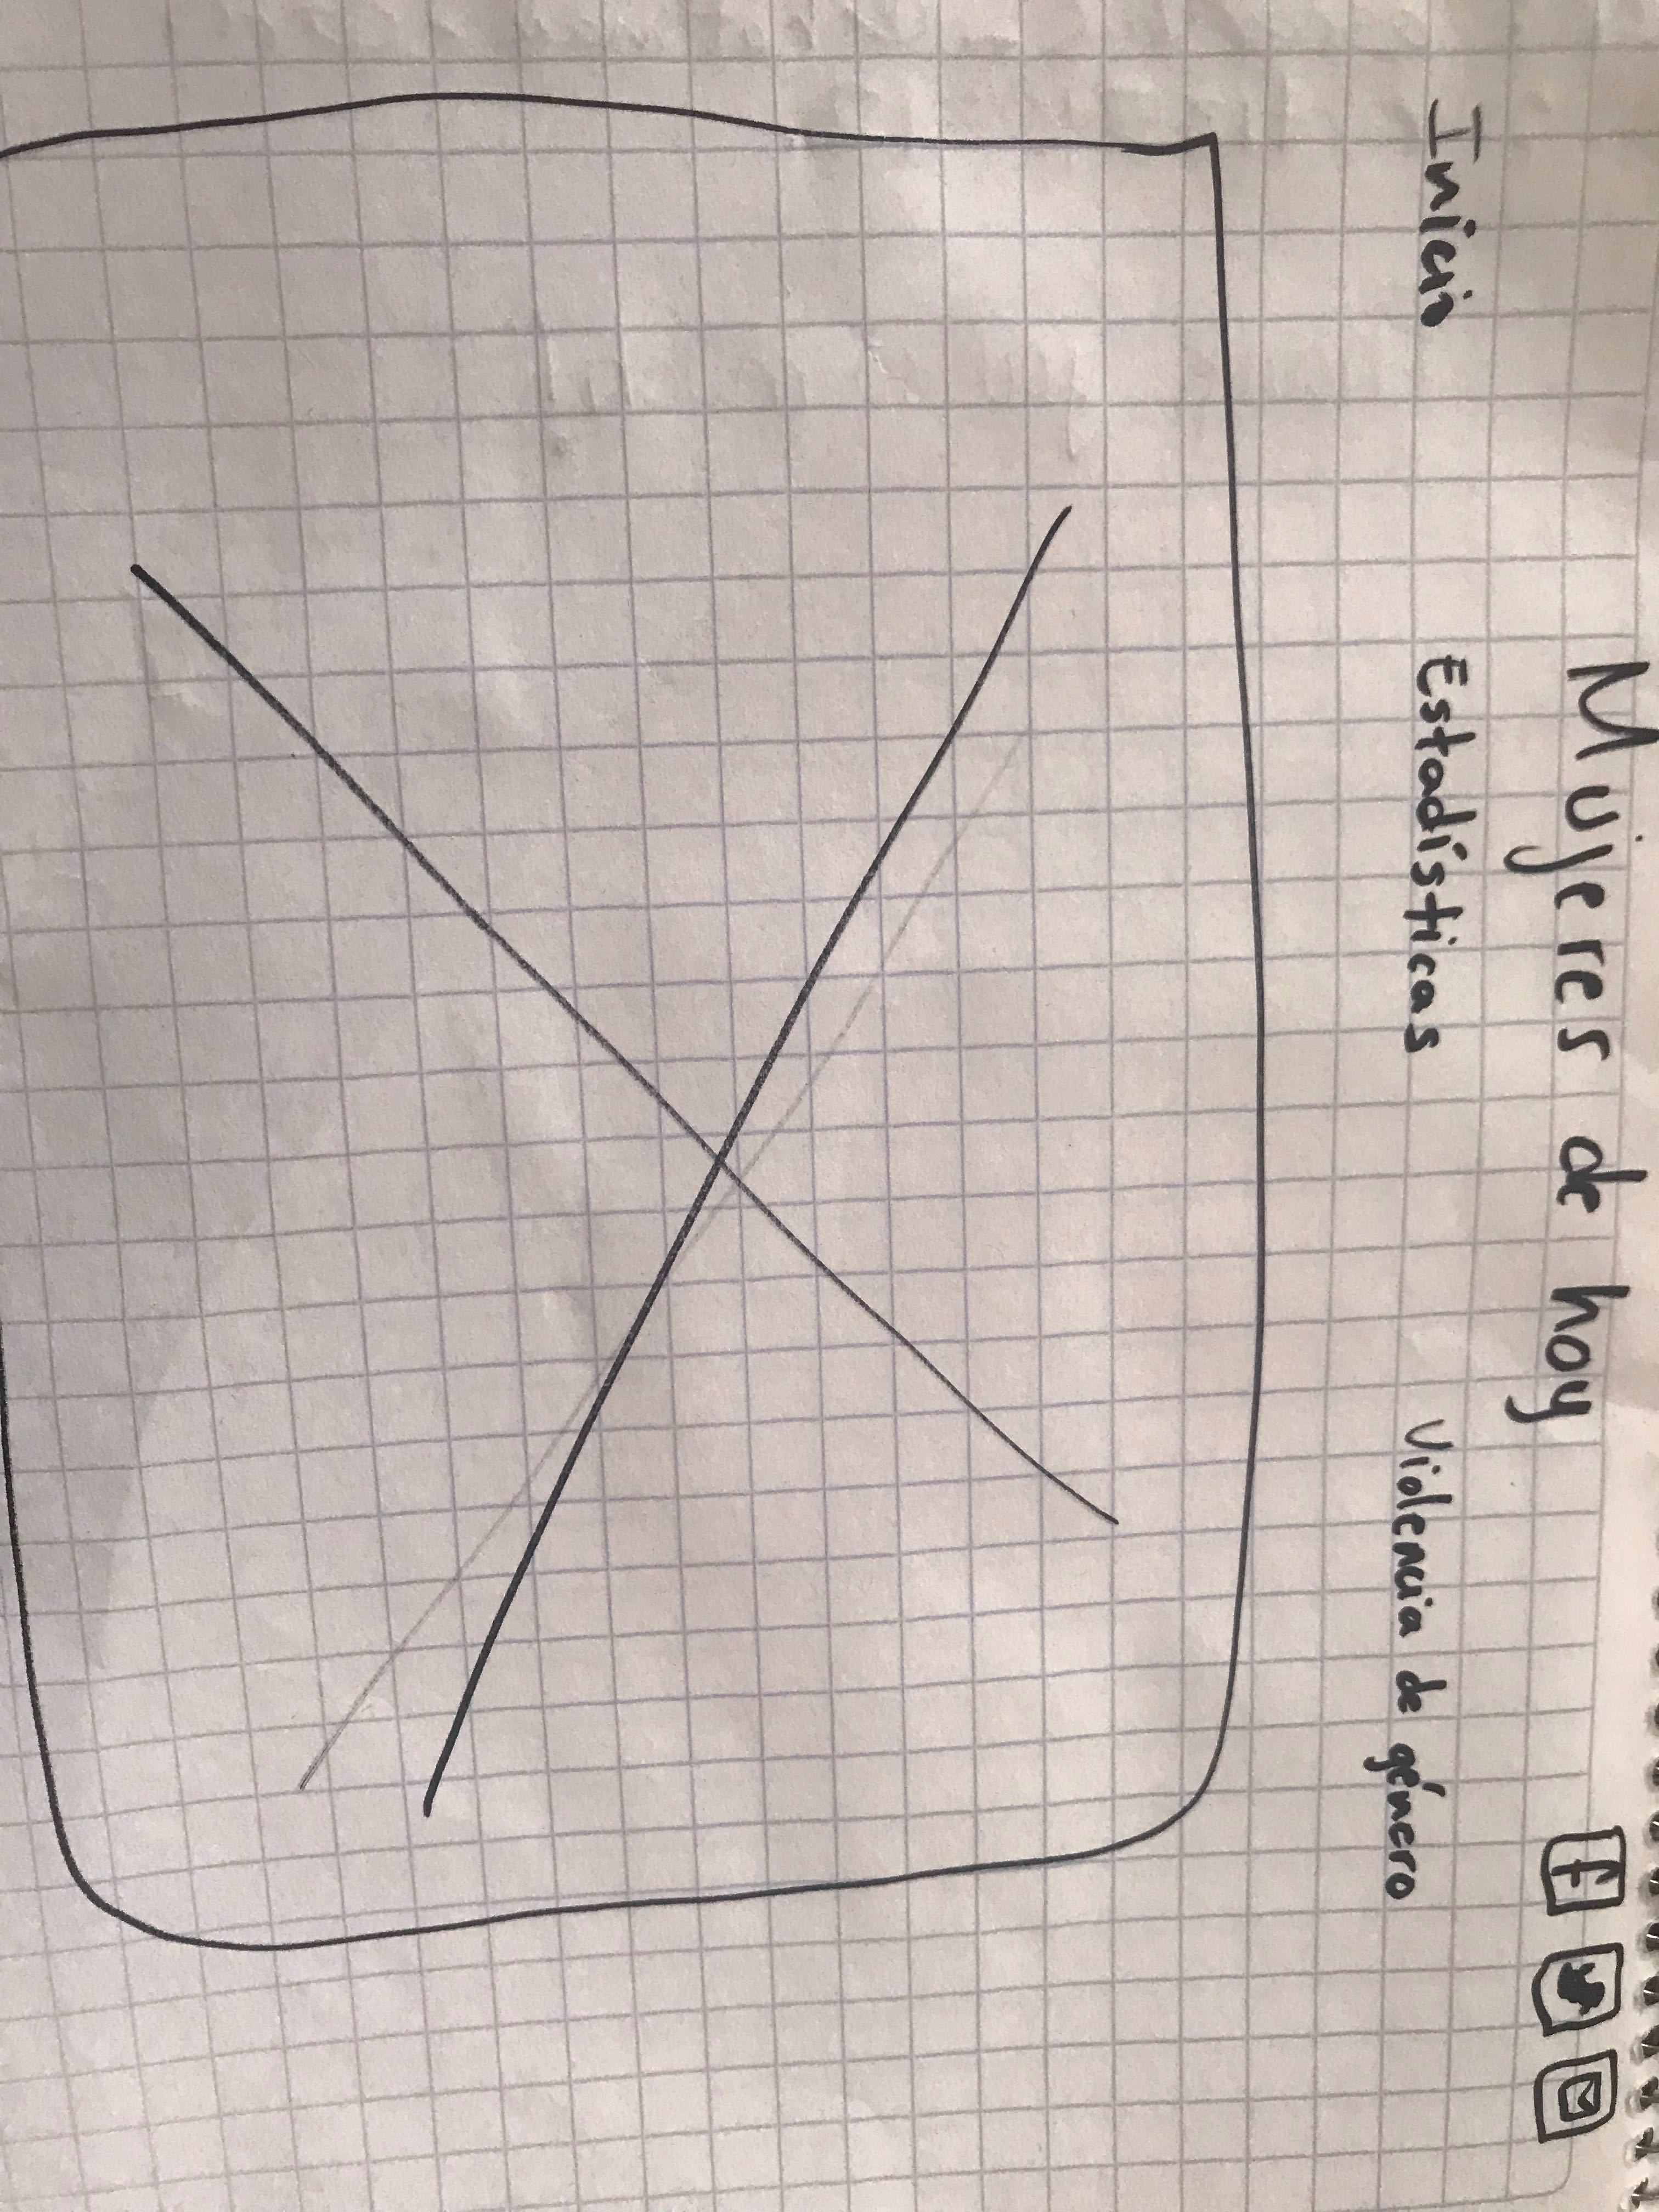 Mujeres de hoy
f
Inicio Estadísticas Violencia de género